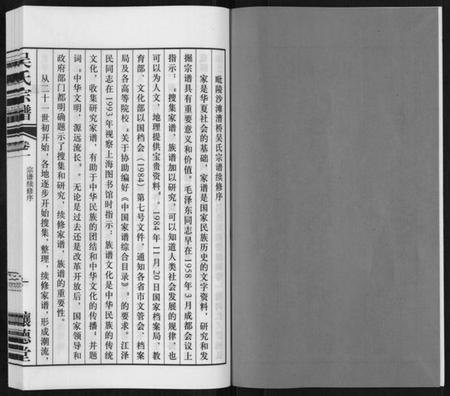 毗陵沙滩漕桥吴氏宗谱续修序
家是华夏社会的基础，家谱是国家民族历史的文字资料，研究和发
掘宗谱具有重要意义和价值。毛泽东同志早在1958年3月成都会议上
指示：“搜集家谱、族谱加以研究，可以知道人类社会发展的规律，也
可以为人文、地理提供宝贵资料。”1984年11月20日国家档案局、教
育部、文化部以国档会（1984）第七号文件，通知各省市文管会、档案
局及各高等院校，关于协助编好《中国家谱综合目录》。的要求。江泽
民同志在1993年视察上海图书馆时指示：“族谱文化是中华民族的传统
文化，收集研究家谱，有助于中华民族的团结和中华文化的传播。并题
词“中华文明，源远流长”。无论是过去还是改革开放后，国家领导和
政府部门都明确题示了搜集和研究、续修家谱、族谱的重要性。
从二十一世初开始，各地逐步开始搜集、整理、续修家谱，形成潮流，
吴氏宗谱
卷
宗谱续修序
一
让德堂